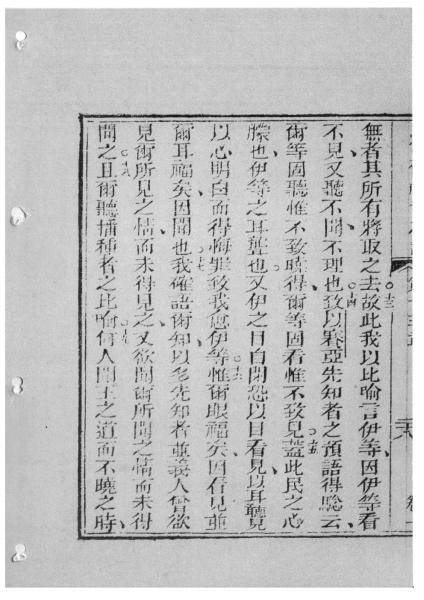 無者其所有將取之去○十三故此我以比喻言伊等、因伊等看
不見又聽不聞、不理也○十四致以賽亞先知者之預語得驗云、
爾等固聽惟不致曉得爾等固看惟不致見○十五蓋此民之心
朦也伊等之耳聾也又伊之目自閉恐以目看見以耳聽見
以心明白而得悔罪致我愈伊等○十六惟爾眼福矣、因看見並
爾耳福矣、因聞也○十七我確語爾知以多先知者並義人曾欲
見爾所見之情而未得見之、又欲聞爾所聞之情而未得
聞之○十八且爾聽播種者之比喻○十九何人聞王之道而不曉之時、